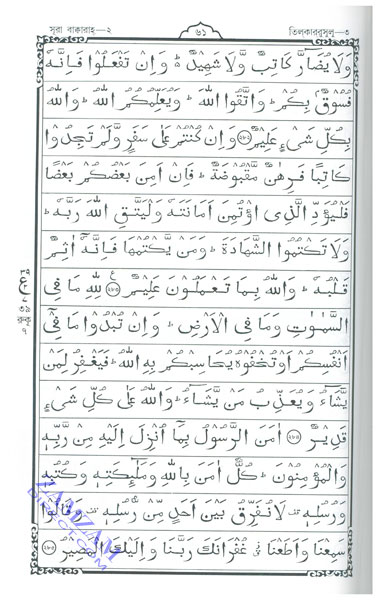 সূরা বাকারাহ্—২ ৬১ তিলকার্‌রুসুল—৩
وَلَا يُضَآرَّ كَاتِبٌ وَّلَا شَهِيْدٌ ۬ؕ وَاِنْ تَفْعَلُوْا فَاِنَّهٗ
فُسُوْقٌۢ بِكُمْ ؕ وَاتَّقُوا اللّٰهَ ؕ وَيُعَلِّمُكُمُ اللّٰهُ ؕ وَاللّٰهُ
بِكُلِّ شَىْءٍ عَلِيْمٌ ﴿۲۸۲﴾ وَاِنْ كُنْتُمْ عَلٰى سَفَرٍ وَّلَمْ تَجِدُوْا
كَاتِبًا فَرِهٰنٌ مَّقْبُوْضَةٌ ؕ فَاِنْ اَمِنَ بَعْضُكُمْ بَعْضًا
فَلْيُؤَدِّ الَّذِى اؤْتُمِنَ اَمَانَتَهٗ وَلْيَتَّقِ اللّٰهَ رَبَّهٗ ؕ
وَلَا تَكْتُمُوا الشَّهَادَةَ ؕ وَمَنْ يَّكْتُمْهَا فَاِنَّهٗۤ اٰثِمٌ
قَلْبُهٗ ؕ وَاللّٰهُ بِمَا تَعْمَلُوْنَ عَلِيْمٌ ﴿۲۸۳﴾ لِلّٰهِ مَا فِى
السَّمٰوٰتِ وَمَا فِى الْاَرْضِ ؕ وَاِنْ تُبْدُوْا مَا فِىْۤ
اَنْفُسِكُمْ اَوْ تُخْفُوْهُ يُحَاسِبْكُمْ بِهِ اللّٰهُ ؕ فَيَغْفِرُ لِمَنْ
يَّشَآءُ وَيُعَذِّبُ مَنْ يَّشَآءُ ؕ وَاللّٰهُ عَلٰى كُلِّ شَىْءٍ
قَدِيْرٌ ﴿۲۸۴﴾ اٰمَنَ الرَّسُوْلُ بِمَاۤ اُنْزِلَ اِلَيْهِ مِنْ رَّبِّهٖ
وَالْمُؤْمِنُوْنَ ؕ كُلٌّ اٰمَنَ بِاللّٰهِ وَمَلٰٓئِكَتِهٖ وَكُتُبِهٖ
وَرُسُلِهٖ ۟ لَا نُفَرِّقُ بَيْنَ اَحَدٍ مِّنْ رُّسُلِهٖ ۟ وَقَالُوْا
سَمِعْنَا وَاَطَعْنَا ۫ غُفْرَانَكَ رَبَّنَا وَاِلَيْكَ الْمَصِيْرُ ﴿۲۸۵﴾
ZAMZAM
DIRECT.COM